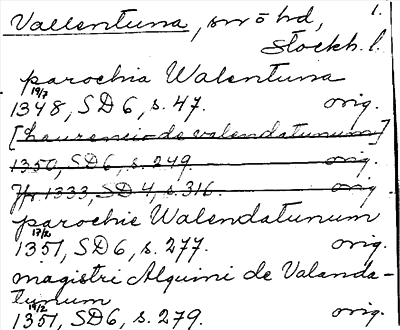 Vallentuna, sn o hd, 1.
Stockh. l.
parochia Walentuna
19/7
1348, SD 6, s. 47. orig.
[Laurencio de valendatunum]
1350, SD 6, s. 249. orig.
Jfr 1333, SD 4, s. 316. orig
parochie Walendatunum
17/2
1351, SD 6, s. 277. orig.
magistri Alquini de Valanda-
tunum
19/2
1351, SD 6, s. 279. orig.